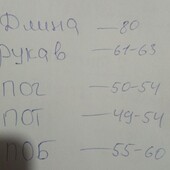 Длина — 80
Рукав — 61-63
ПОГ — 50-54
ПОТ — 49-54
ПОБ — 55-60